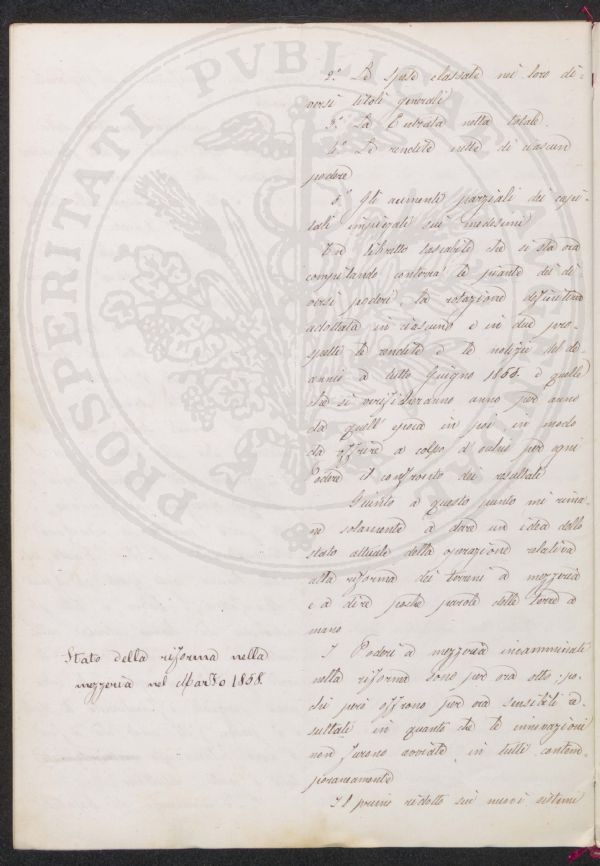 2.° Le spese classate nei loro di-
versi titoli generali
3.° La Entrata netta totale.
4.° Le rendite nette di ciascun
podere
5.° Gli aumenti parziali dei capi-
tali impiegati sui medesimi
Un libretto tascabile che si sta ora
compilando conterrà le piante dei di
versi poderi, la rotazione definitiva
adottata in ciascuno e in due pro-
spetti le rendite e le notizie del de-
cennio a tutto Giugno 1858. e quelle
che si verificheranno anno per anno
da quell' epoca in poi in modo
da offrire a colpo d' occhio per ogni
Podere il confronto dei resultati
Giunto a questo punto mi rima-
ne solamente a dare un idea dello
stato attuale della operazione relativa
alla riforma dei terreni a mezzeria
e a dire poche parole delle terre a
mano
Stato della riforma nella
mezzeria nel Marzo 1858.
I Poderi a mezzeria incamminati
nella riforma sono per ora otto; po-
chi però offrono per ora sensibili re-
sultati in quanto che le innovazioni
non furono avviate in tutti contem-
poraneamente
Il primo ridotto sui nuovi sistemi
PROSPERITATI PVBLICAE